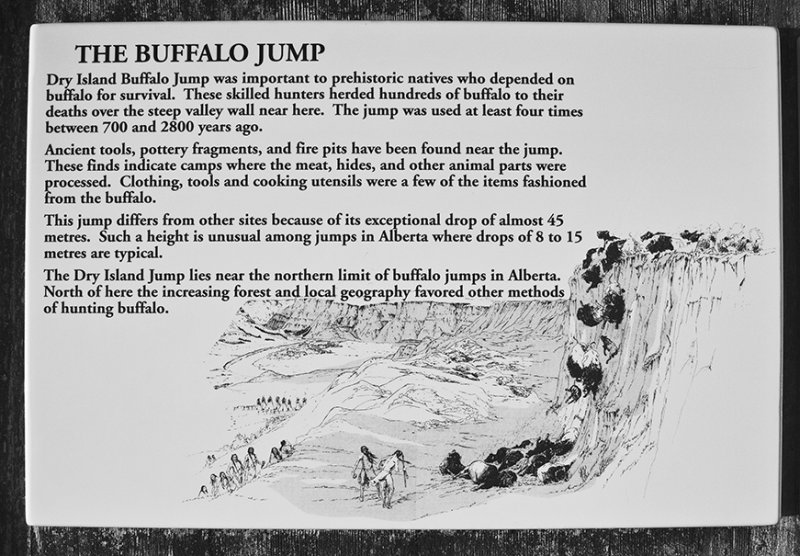 THE BUFFALO JUMP
Dry Island Buffalo Jump was important to prehistoric natives who depended on
buffalo for survival. These skilled hunters herded hundreds of buffalo to their
deaths over the steep valley wall near here. The jump was used at least four times
between 700 and 2800 years ago.
Ancient tools, pottery fragments, and fire pits have been found near the jump.
These finds indicate camps where the meat, hides, and other animal parts were
processed. Clothing, tools and cooking utensils were a few of the items fashioned
from the buffalo.
This jump differs from other sites because of its exceptional drop of almost 45
metres. Such a height is unusual among jumps in Alberta where drops of 8 to 15
metres are typical.
The Dry Island Jump lies near the northern limit of buffalo jumps in Alberta.
North of here the increasing forest and local geography favored other methods
of hunting buffalo.